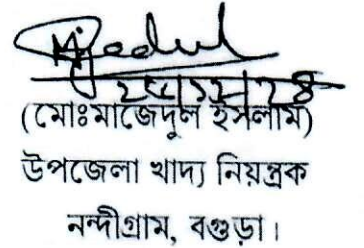 (মোঃমাজেদুল ইসলাম)
উপজেলা খাদ্য নিয়ন্ত্রক
নন্দীগ্রাম, বগুড়া।